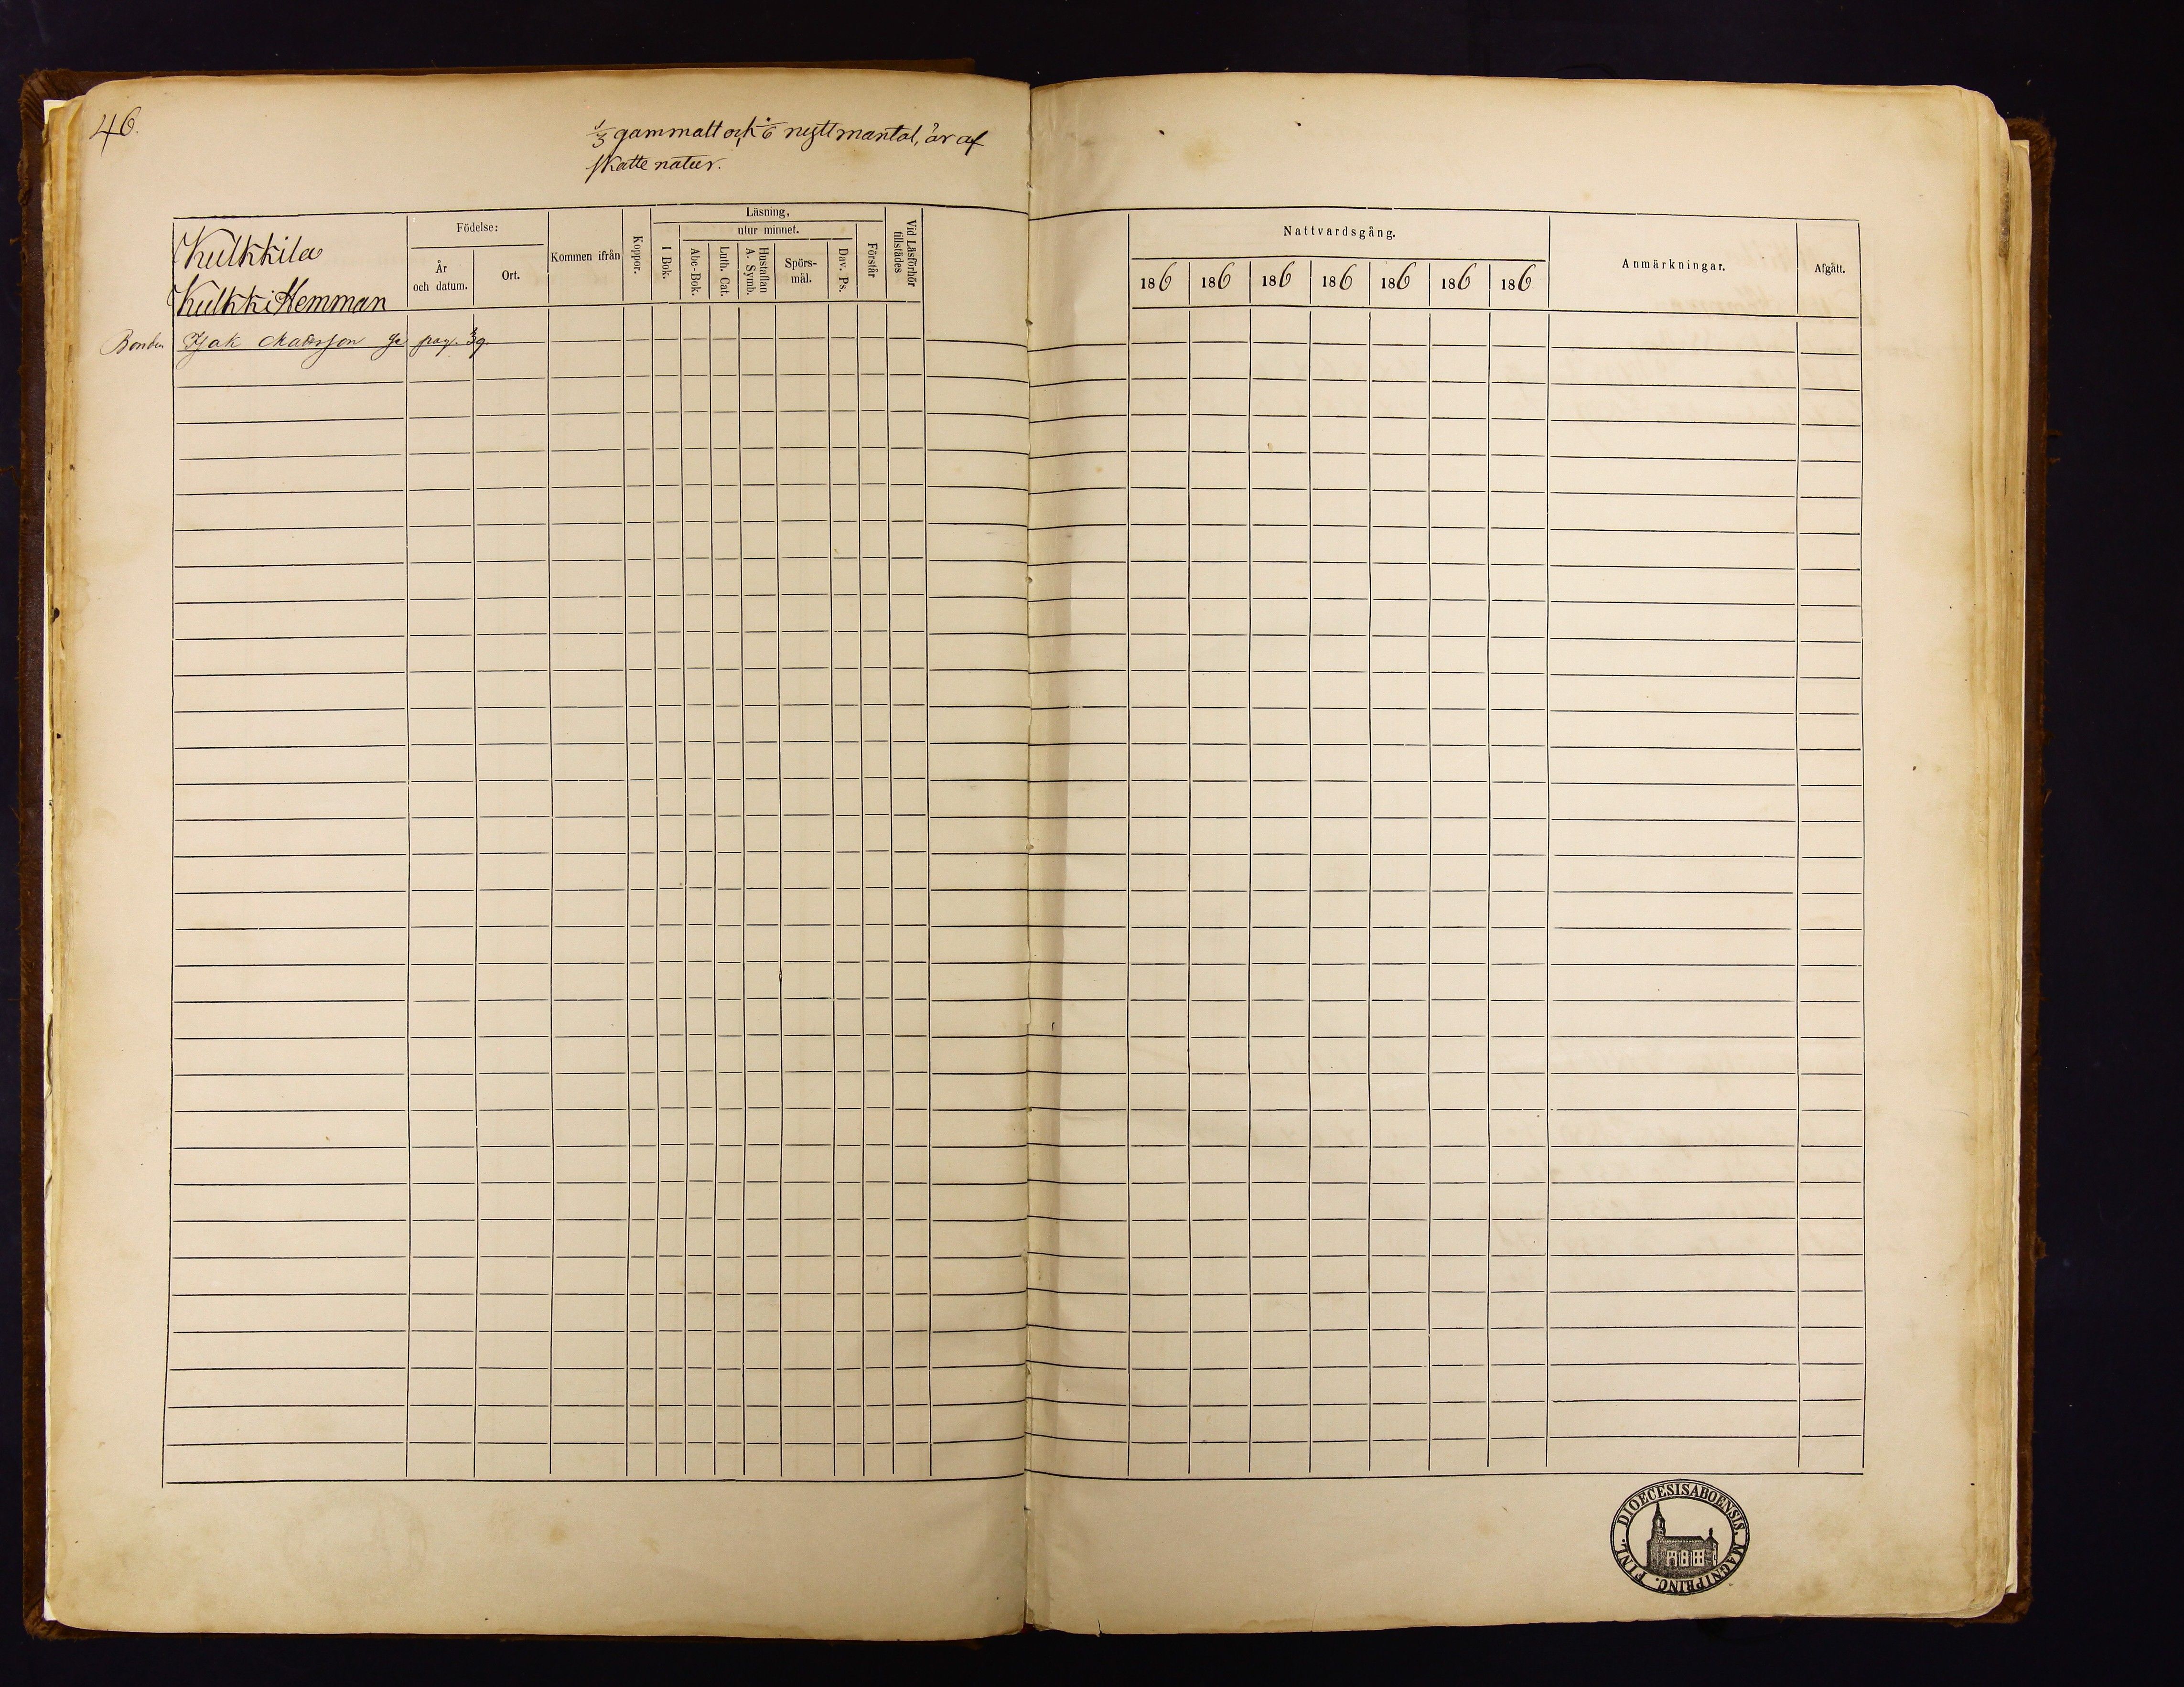 46.
1/3 gammalt och 1/6 nytt mantal, är af
skatte natur.
Kulkkila
Kulkki Hemman
Födelse:
År
och datum.
Ort.
Kommen ifrån
Koppor.
Läsning,
utur minnet.
I Bok.
Abc-Bok.
Luth. Cat.
Hustaflan
A. Symb.
Spörs-
mål.
Dav. Ps.
Förstår
Vid Läsförhör
tillstädes
Nattvardsgång.
186 186 186 186 186 186 186
Anmärkningar.
Afgått.
Bonden Isak Matsson Se pag. 39.
DIOECESIS ABOENSIS. MAGNI PRINC. FINL.